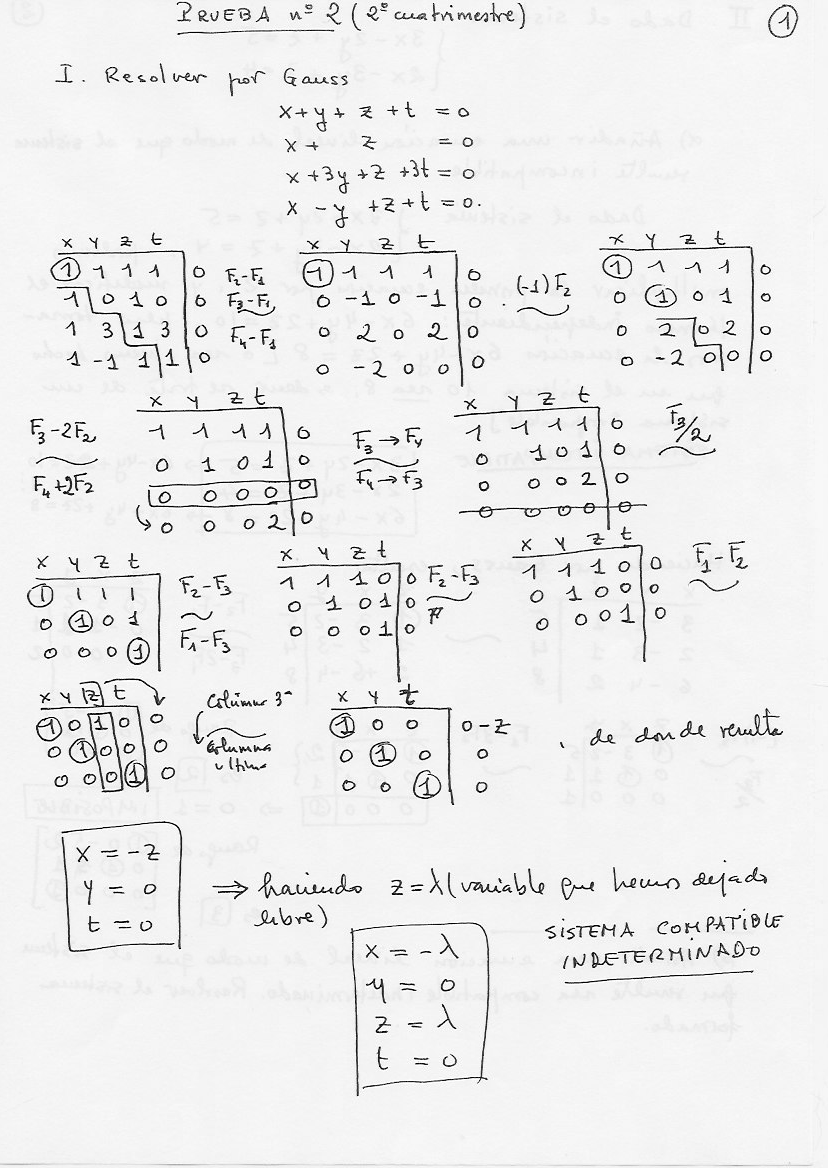 PRUEBA nº 2 (2º cuatrimestre) 1
I. Resolver por Gauss
x + y + z + t = 0
x + z = 0
x + 3y + z + 3t = 0
x - y + z + t = 0.
x y z t
1 1 1 1 0
1 0 1 0 0
1 3 1 3 0
1 -1 1 1 0
F2-F1
F3-F1
F4-F1
x y z t
1 1 1 1 0
0 -1 0 -1 0
0 2 0 2 0
0 -2 0 0 0
(-1) F2
x y z t
1 1 1 1 0
0 1 0 1 0
0 2 0 2 0
0 -2 0 0 0
F3-2F2
F4+2F2
x y z t
1 1 1 1 0
0 1 0 1 0
0 0 0 0 0
0 0 0 2 0
F3 → F4
F4 → F3
x y z t
1 1 1 1 0
0 1 0 1 0
0 0 0 2 0
0 0 0 0 0
F3/2
x y z t
1 1 1 1
0 1 0 1
0 0 0 1
F2-F3
F1-F3
x y z t
1 1 1 0 0
0 1 0 1 0
0 0 0 1 0
F2-F3
x y z t
1 1 1 0 0
0 1 0 0 0
0 0 0 1 0
F1-F2
x y z t
1 0 1 0 0
0 1 0 0 0
0 0 0 1 0
Columna 3ª
Columna
última
x y t
1 0 0 0-z
0 1 0 0
0 0 1 0
de donde resulta
x = -z
y = 0
t = 0
⇒ haciendo z = λ (variable que hemos dejado
libre)
x = -λ
y = 0
z = λ
t = 0
SISTEMA COMPATIBLE
INDETERMINADO